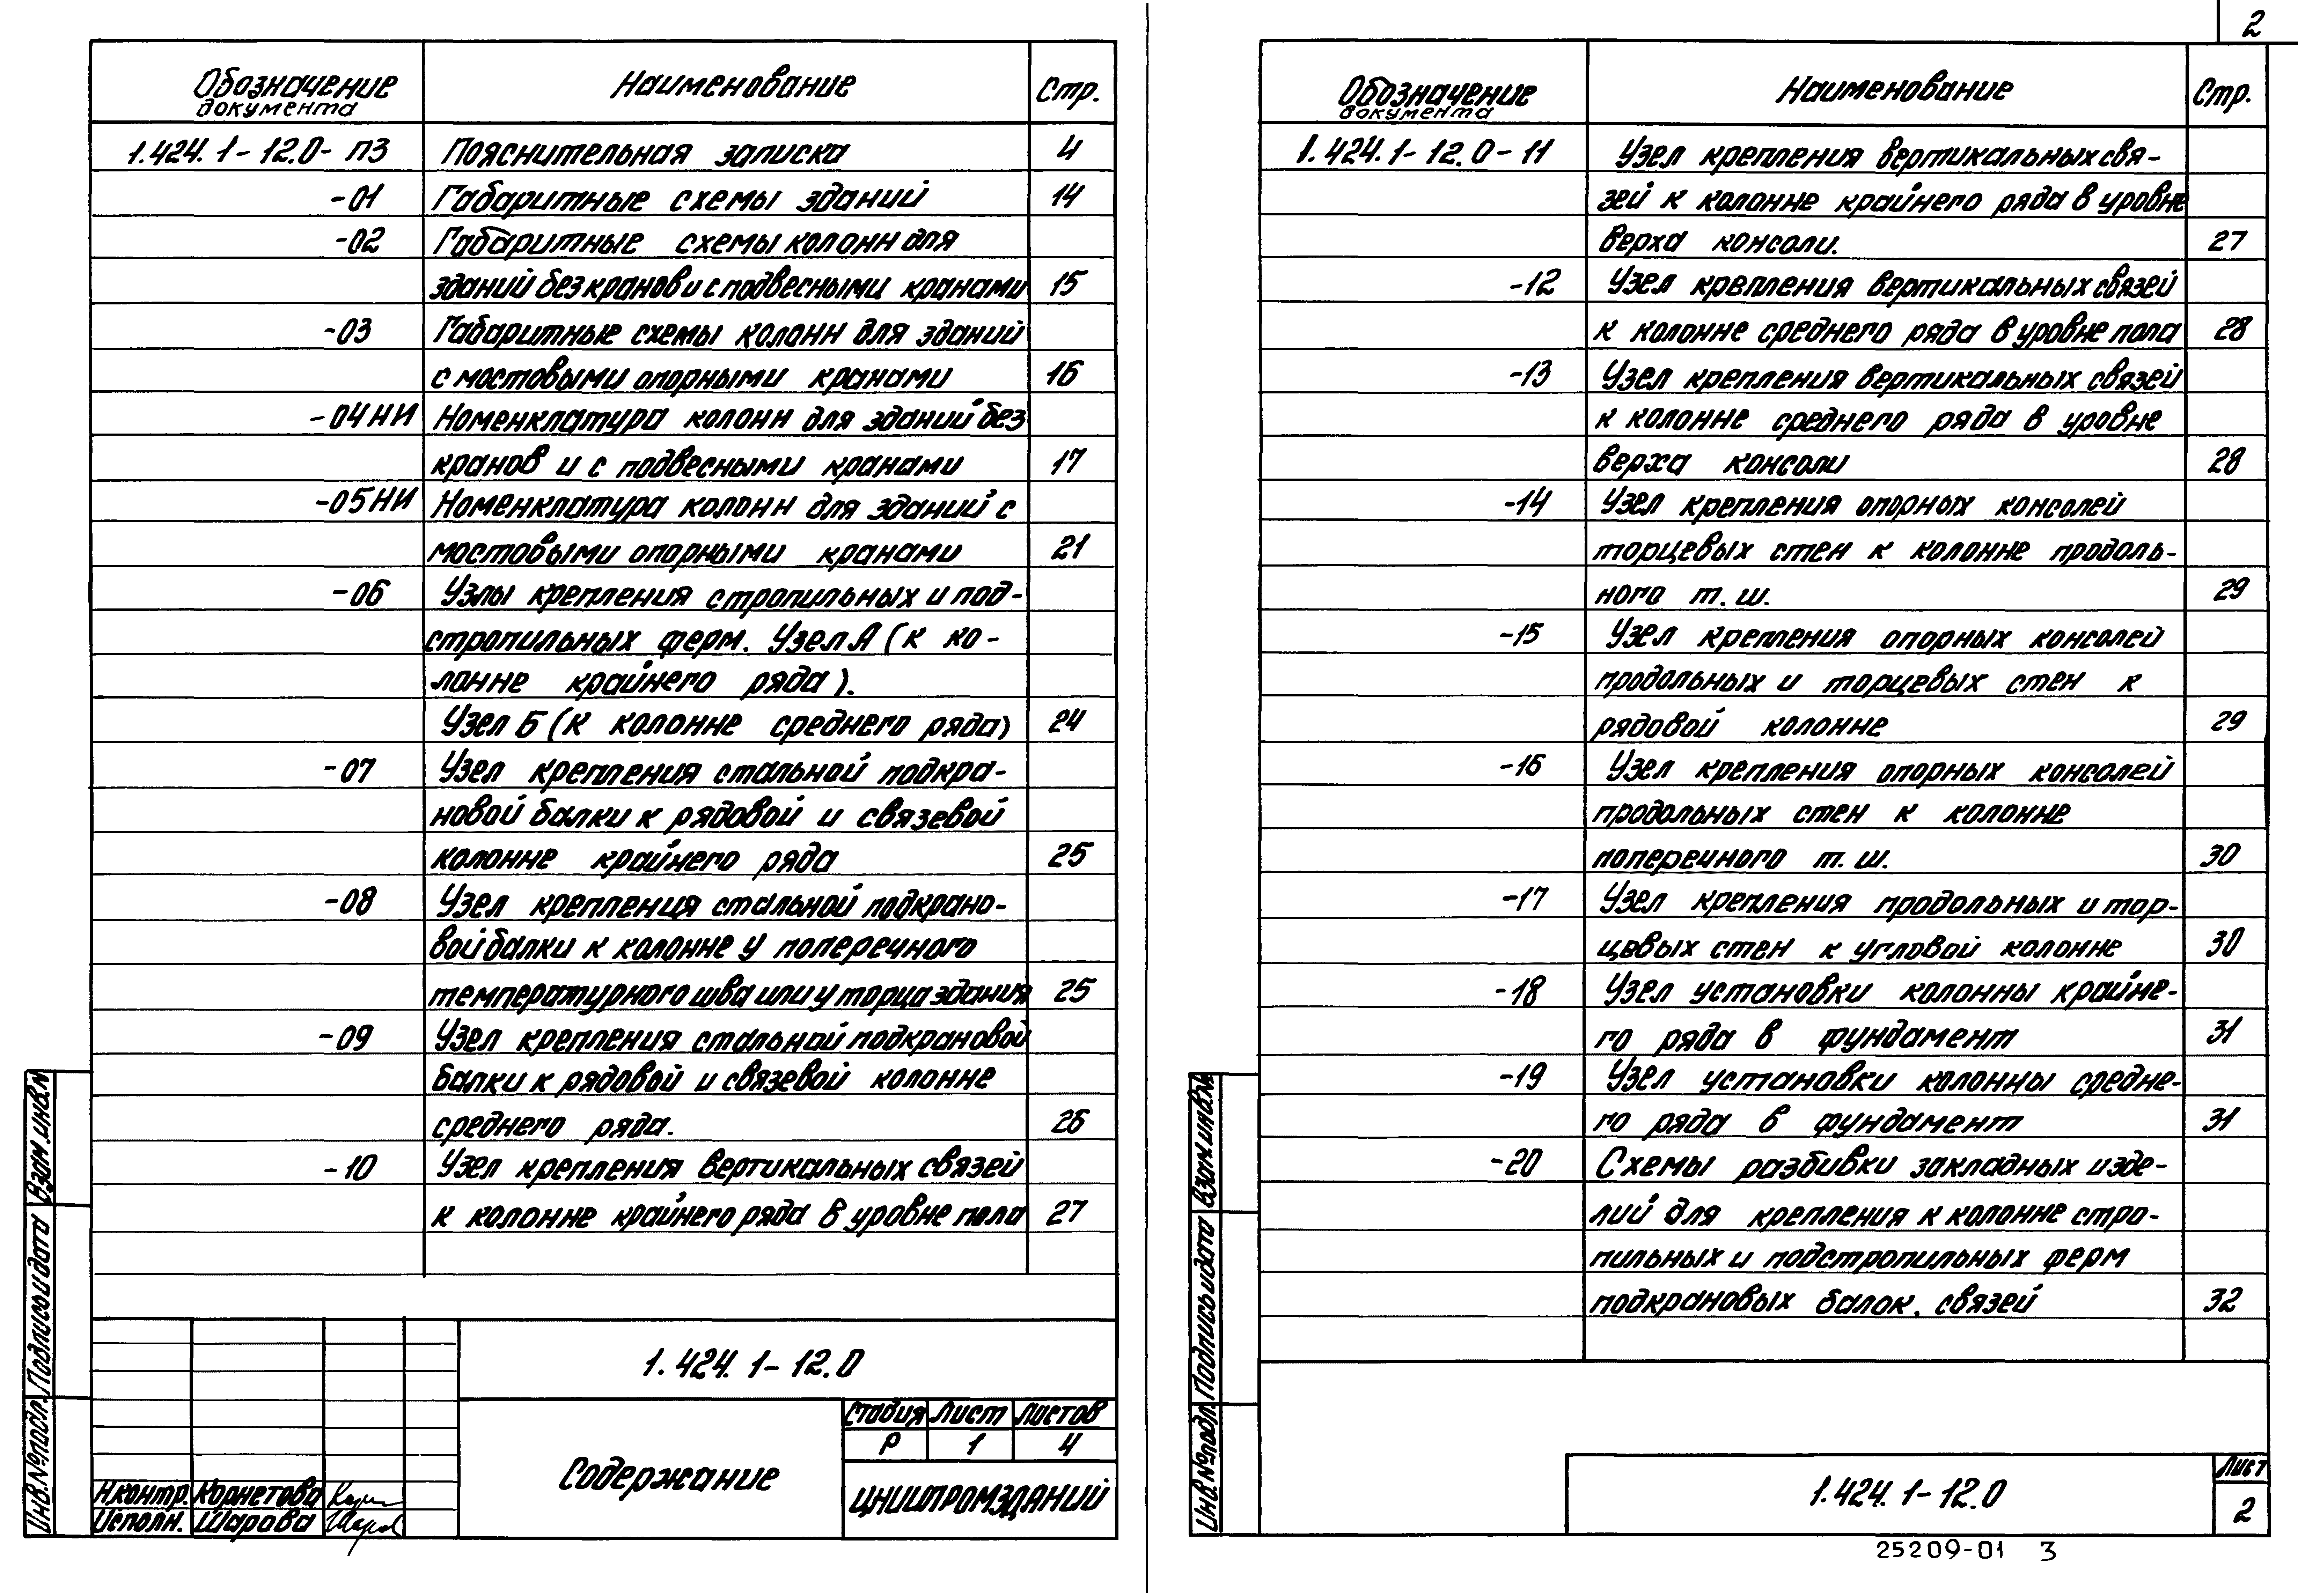 Обозначение документа Наименование Стр.
1.424.1-12.0-ПЗ Пояснительная записка 4
-01 Габаритные схемы зданий 14
-02 Габаритные схемы колонн для
зданий без кранов и с подвесными кранами 15
-03 Габаритные схемы колонн для зданий
с мостовыми опорными кранами 16
-04НИ Номенклатура колонн для зданий без
кранов и с подвесными кранами 17
-05НИ Номенклатура колонн для зданий с
мостовыми опорными кранами 21
-06 Узлы крепления стропильных и под-
стропильных ферм. Узел А (к ко-
лонне крайнего ряда).
Узел Б (к колонне среднего ряда) 24
-07 Узел крепления стальной подкра-
новой балки к рядовой и связевой
колонне крайнего ряда 25
-08 Узел крепления стальной подкрано-
вой балки к колонне у поперечного
температурного шва или у торца здания 25
-09 Узел крепления стальной подкрановой
балки к рядовой и связевой колонне
среднего ряда. 26
-10 Узел крепления вертикальных связей
к колонне крайнего ряда в уровне пола 27
1.424.1-12.0
Содержание
Стадия Лист Листов
Р 1 4
ЦНИИПРОМЗДАНИЙ
Н.контр. Корнетова
Исполн. Шарова
Взам.инв.№
Подпись и дата
Инв.№подл.
2
Обозначение документа Наименование Стр.
1.424.1-12.0-11 Узел крепления вертикальных свя-
зей к колонне крайнего ряда в уровне
верха консоли. 27
-12 Узел крепления вертикальных связей
к колонне среднего ряда в уровне пола 28
-13 Узел крепления вертикальных связей
к колонне среднего ряда в уровне
верха консоли 28
-14 Узел крепления опорных консолей
торцевых стен к колонне продоль-
ного т.ш. 29
-15 Узел крепления опорных консолей
продольных и торцевых стен к
рядовой колонне 29
-16 Узел крепления опорных консолей
продольных стен к колонне
поперечного т.ш. 30
-17 Узел крепления продольных и тор-
цевых стен к угловой колонне 30
-18 Узел установки колонны крайне-
го ряда в фундамент 31
-19 Узел установки колонны средне-
го ряда в фундамент 31
-20 Схемы разбивки закладных изде-
лий для крепления к колонне стро-
пильных и подстропильных ферм
подкрановых балок, связей 32
1.424.1-12.0
Лист
2
Взам.инв.№
Подпись и дата
Инв.№подл.
25209-01 3